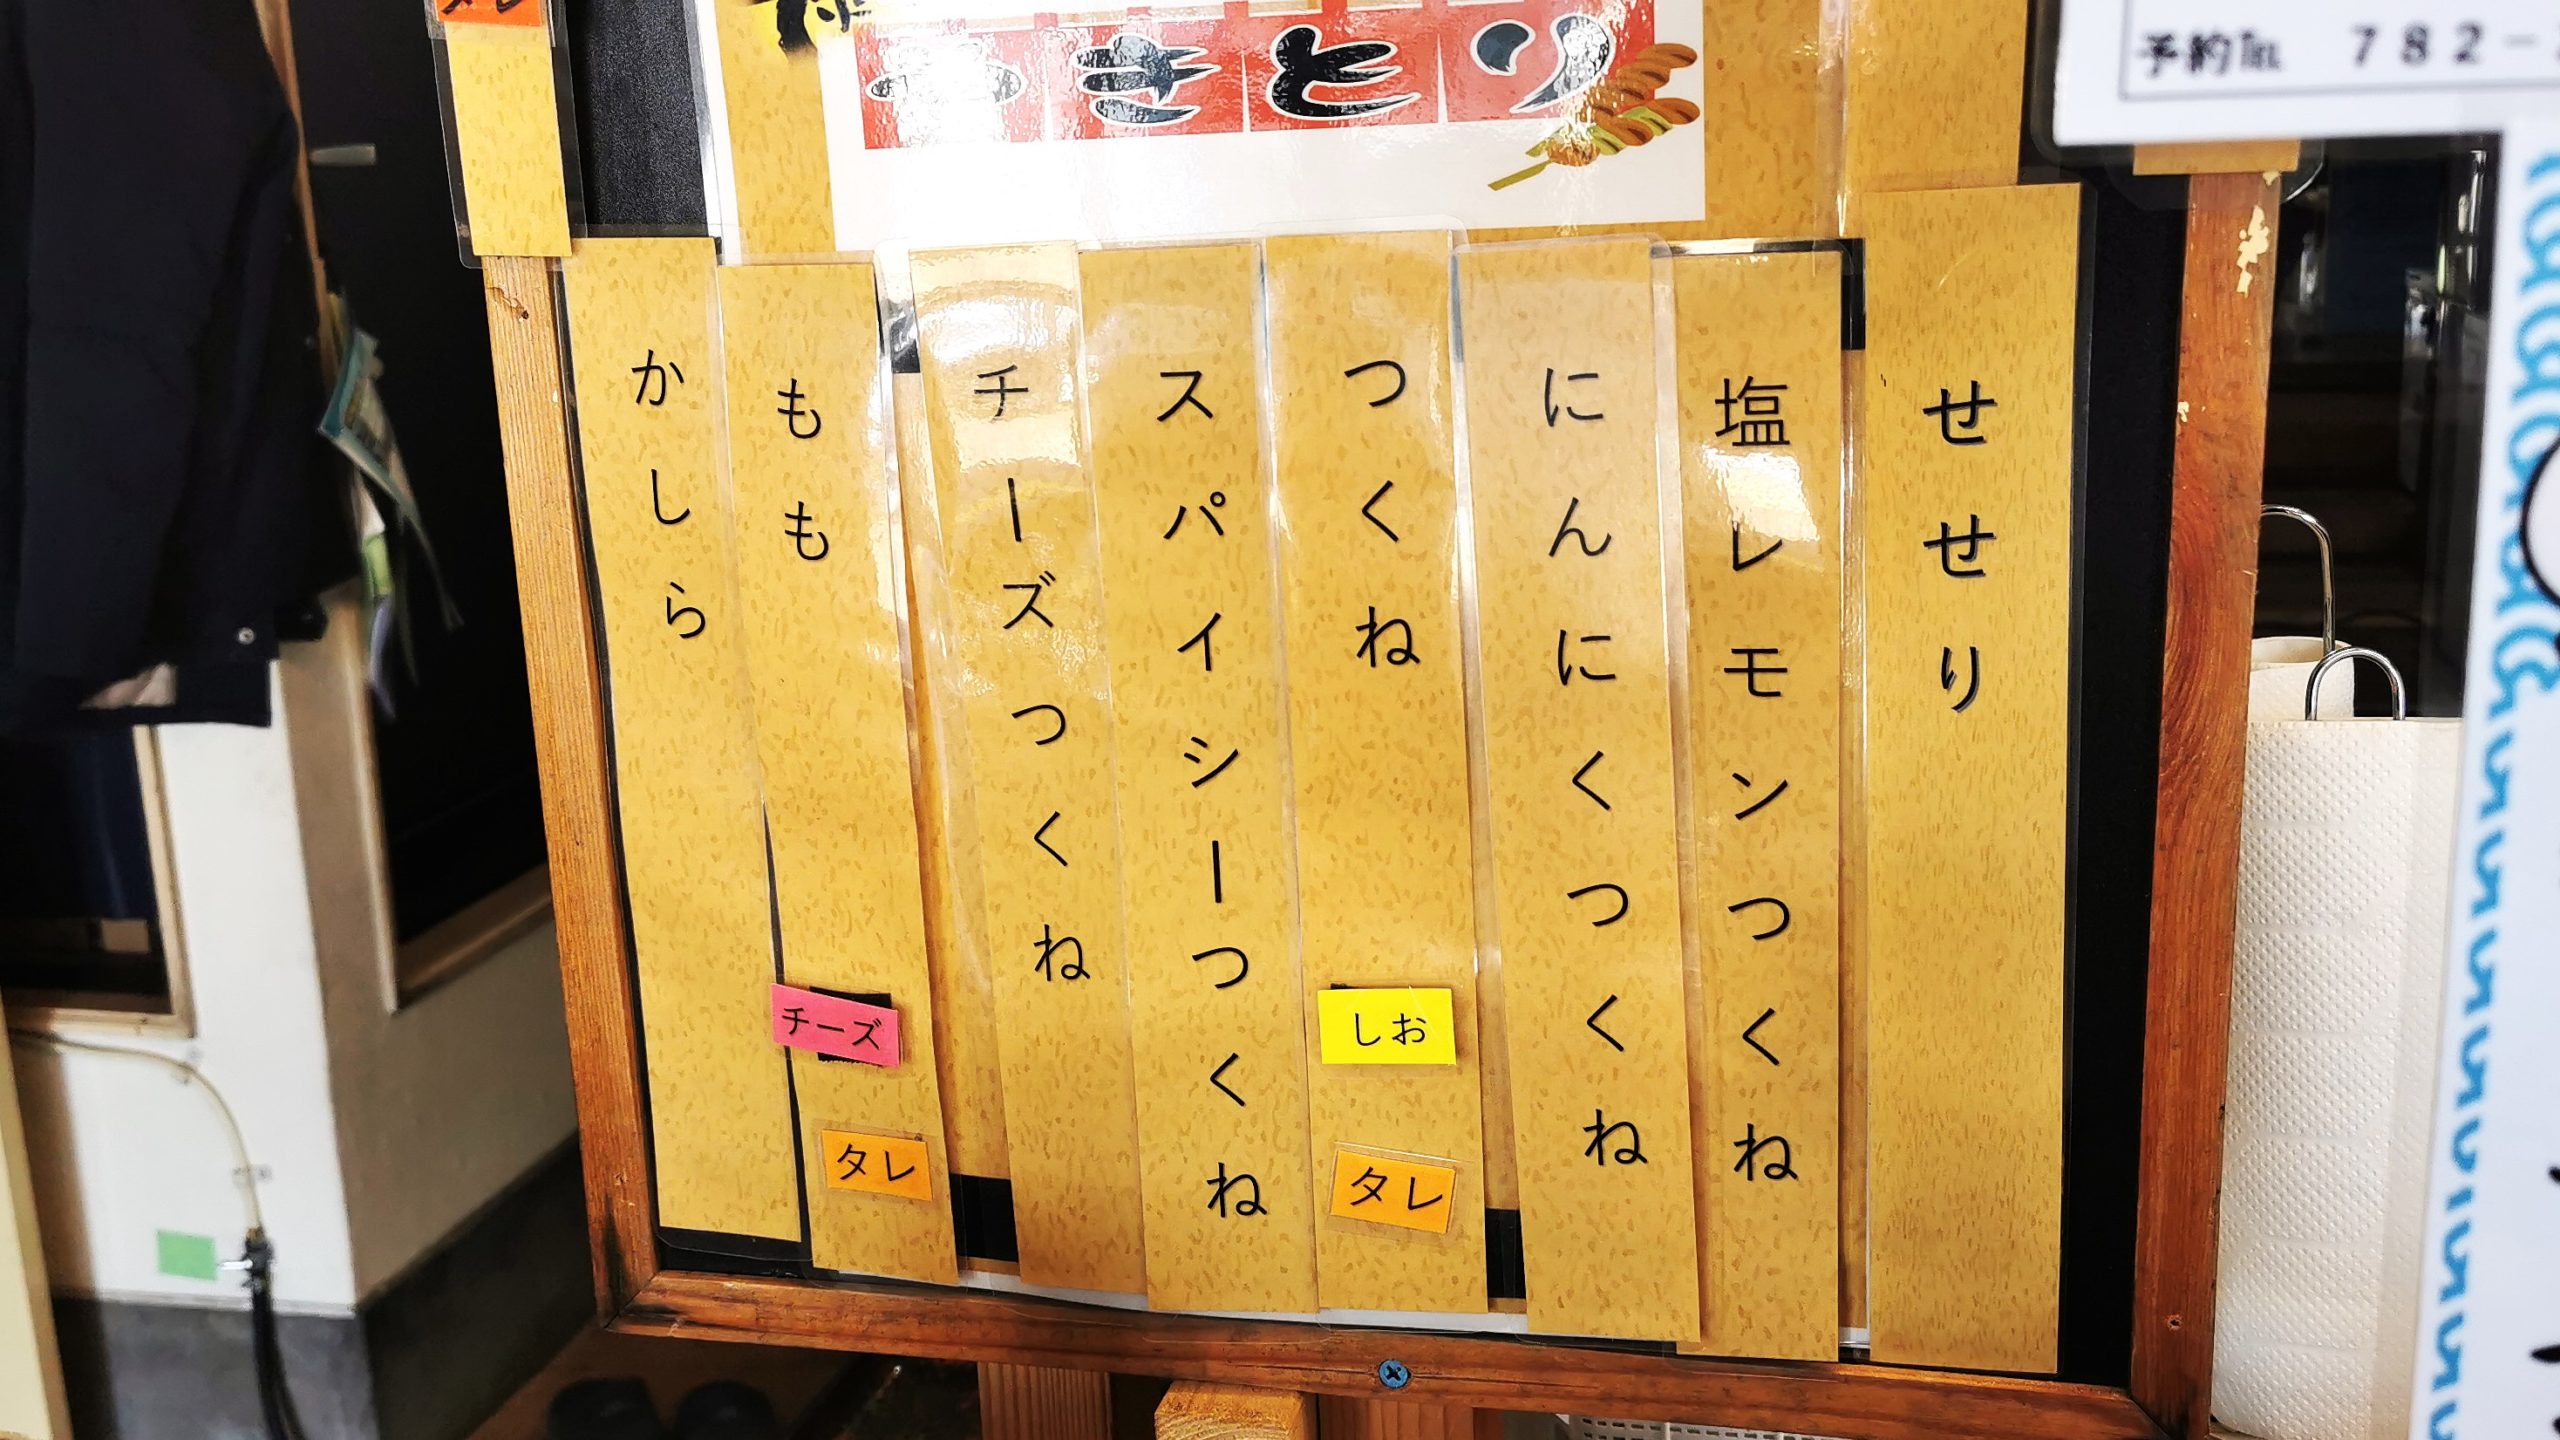 タレ
やきとり
予約℡ 782-
せせり
塩レモンつくね
にんにくつくね
つくね
しお
タレ
スパイシーつくね
チーズつくね
もも
チーズ
タレ
かしら